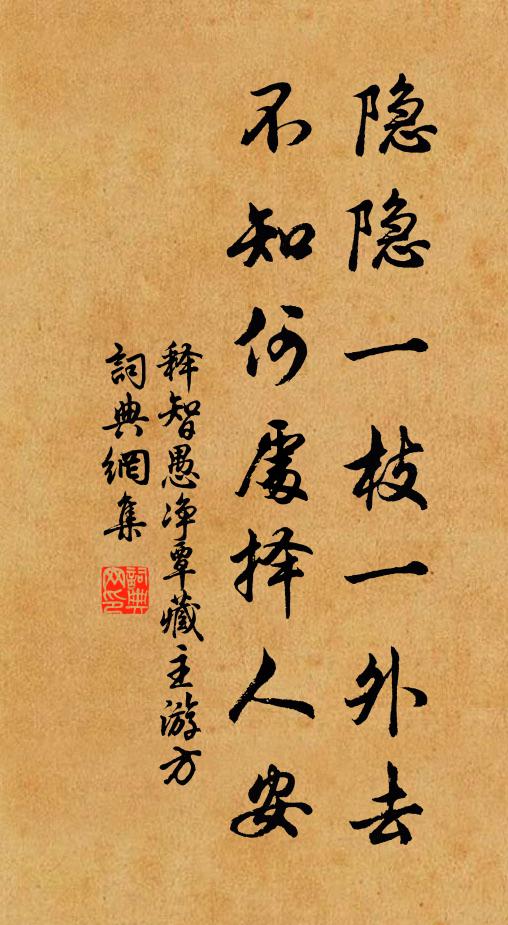 隐隐一枝一外去
不知何處择人安
释智愚净覃藏主游方
詞典網集
詞典網印